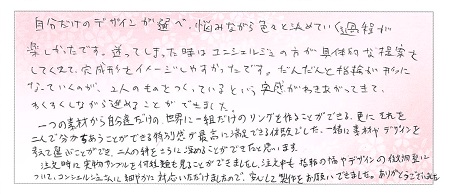 自分だけのデザインが選べ、悩みながら色々と決めていく過程が
楽しかったです。迷ってしまった時はコンシェルジュの方が具体的な提案を
してくれて、完成形をイメージしやすかったです。だんだんと指輪が形に
なっていくのが、2人のものをつくっているという実感がわきあがってきて、
わくわくしながら進めることができました。
一つの素材から自分達だけの、世界に一組だけのリングを作ることができる。更にそれを
二人で分かちあうことができる特別感が最高に満足できる体験でした。一緒に素材やデザインを
考えて選ぶことができ、二人の絆をさらに深めることができたと思います。
注文時に実物サンプルを何種類も見ることができましたし、注文中も指輪の幅やデザインの微調整に
ついて、コンシェルジュさんに細やかに対応いただけましたので、安心して製作をお願いできました。ありがとうございました